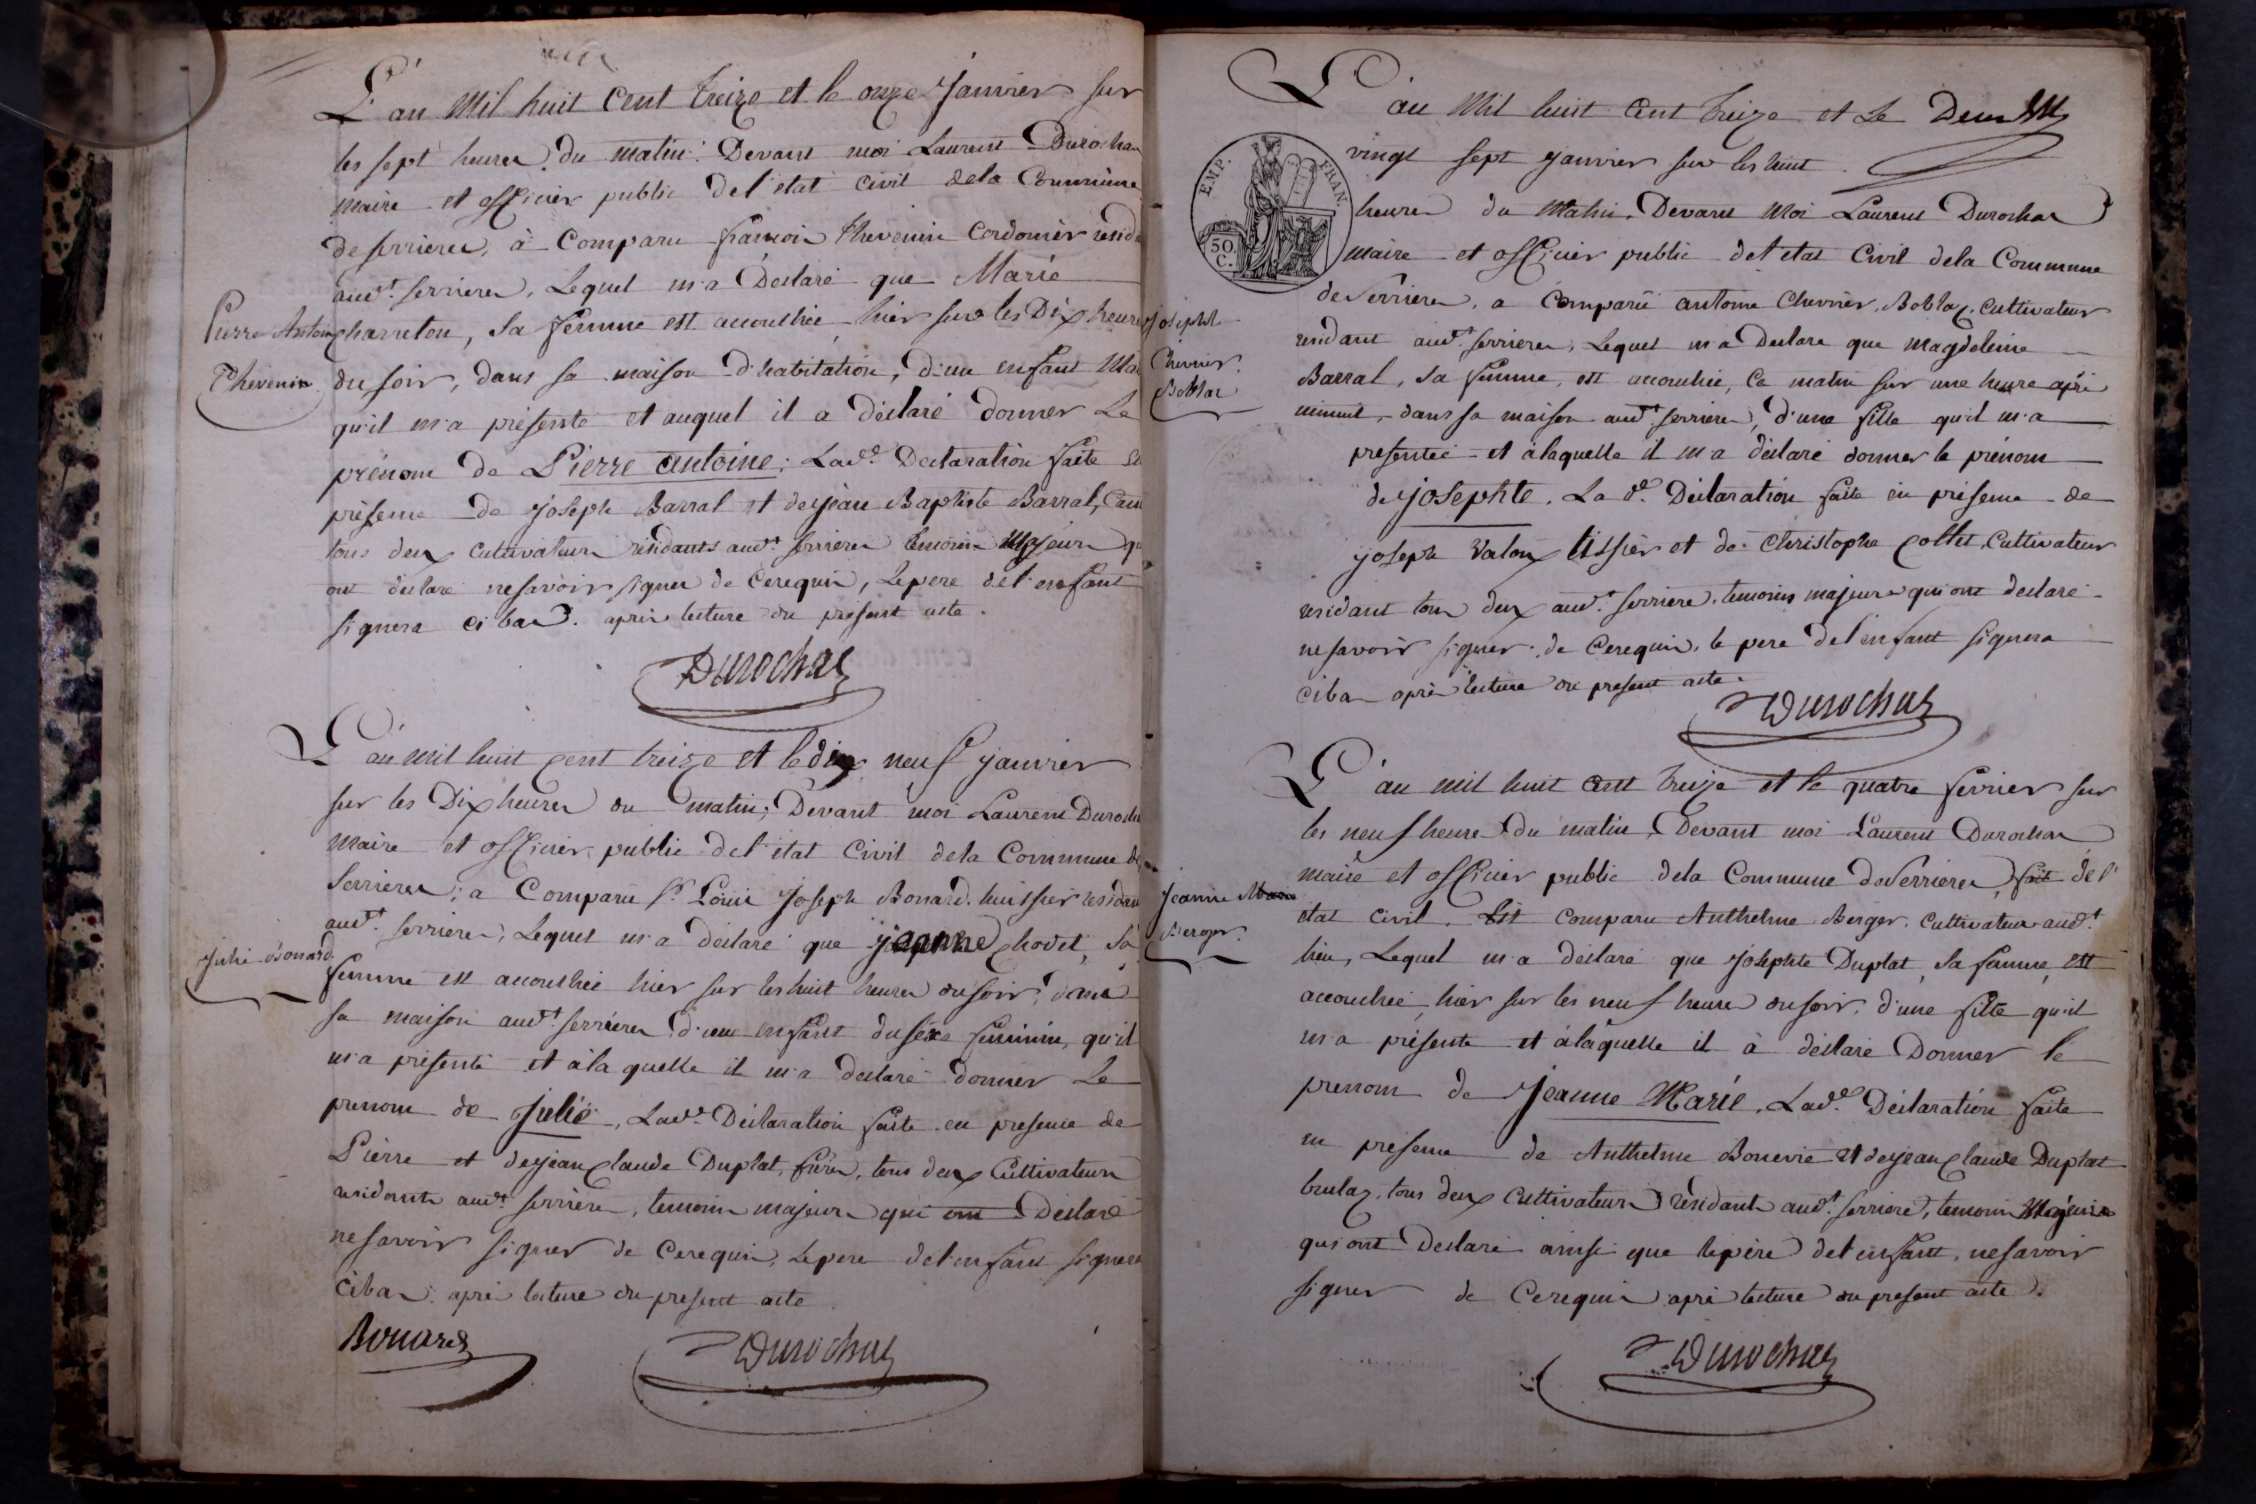 L'an Mil huit Cent treize et le onze Janvier sur
les sept heures du matin. Devant moi Laurent Durochas
maire et officier public de l'etat civil dela Commune
de serrieres, à Comparu francois thevenin Cordonier resid
aud.t serrieres, Lequel m'a Déclaré que Marie
Pierre Antoine
charreton, sa femme est accouchée hier sur les Dix heures
Thevenin
du soir, dans sa maison d'habitation, d'un enfant Ma
qu'il m'a présenté et auquel il a déclaré donner Le
prénom de Pierre Antoine; Lad.e Declaration faite en
présence de joseph Barral et de jean Baptiste Barral,
tous deux cultivateurs residants aud.t serrieres temoins Majeurs qu
ont déclaré ne savoir signer de Cerequis, Le pere de l'enfant
signera ci bas. après lecture du présent acte.
Durochas
L'an mil huit cent treize et le dix neuf janvier
sur les Dix heures du matin; Devant moi Laurent Duroch
Maire et officier public de l'état Civil dela Commune de
Serrieres; a Comparu s.r Louis Joseph Bonard huissier residan
aud.t serrieres, Lequel m'a déclaré que jeanne chodet, sa
Julie Bonard
femme est accouchée hier sur les huit heures du soir, dans
sa maison aud.t serrieres d'un enfant du séxe feminin, qu'il
m'a présenté et à la quelle il m'a declaré donner Le
prenom de Julie, Lad.e Déclaration faite en presence de
Pierre et de jean claude Duplat, freres, tous deux Cultivateurs
residants aud.t serrieres, temoins majeurs qui ont Déclaré
ne savoir signer de Cerequis, Le pere de l'enfant signera
ci bas. après lecture du present acte
Bonard
Durochas
L'an Mil huit Cent treize et Le
vingt sept janvier sur les huit
EMP. FRAN.
50 C.
heures du Matin. Devant Moi Laurent Durochas
maire et officier public de l'etat Civil dela Commune
de Serrieres, a Comparu antoine Chevrier Boblaz, Cultivateur
josephte
residant aud.t serrieres, Lequel m'a Declaré que Magdeleine
Chevrier
Barral, sa femme, est accouchée, Ce matin sur une heure après
Boblaz
minuit, dans sa maison aud.t serrieres, d'une fille qu'il m'a
presentée et à laquelle il m'a déclaré donner le prénom
de josephte. La d.e Déclaration faite en présence de
joseph Valoux tissier et de Christophe Collet, Cultivateur
residant tous deux aud.t serriere, temoins majeurs qui ont declaré
ne savoir signer. de Cerequis, le pere de l'enfant signera
ci bas après lecture du présent acte.
Durochas
L'an mil huit Cent treize et le quatre fevrier sur
les neuf heures du matin, Devant moi Laurent Durochas
maire et officier public dela Commune de Serrieres, fait de l'
Jeanne Marie
état Civil. Est comparu Anthelme Berger, Cultivateur aud.t
Berger
lieu, Lequel m'a déclaré que josephte Duplat, sa femme, est
accouchée, hier sur les neuf heures du soir, d'une fille qu'il
m'a présenté et à laquelle il à déclaré Donner le
prenom de Jeanne Marie. Lad.e Déclaration faite
en présence de Anthelme Bonevie et de jean claude Duplat
brulaz, tous deux Cultivateurs résidants aud.t serriere, temoins Majeurs
qui ont Declaré ainsi que le père de l'enfant, ne savoir
signer de Cerequis après lecture du present acte.
Durochas